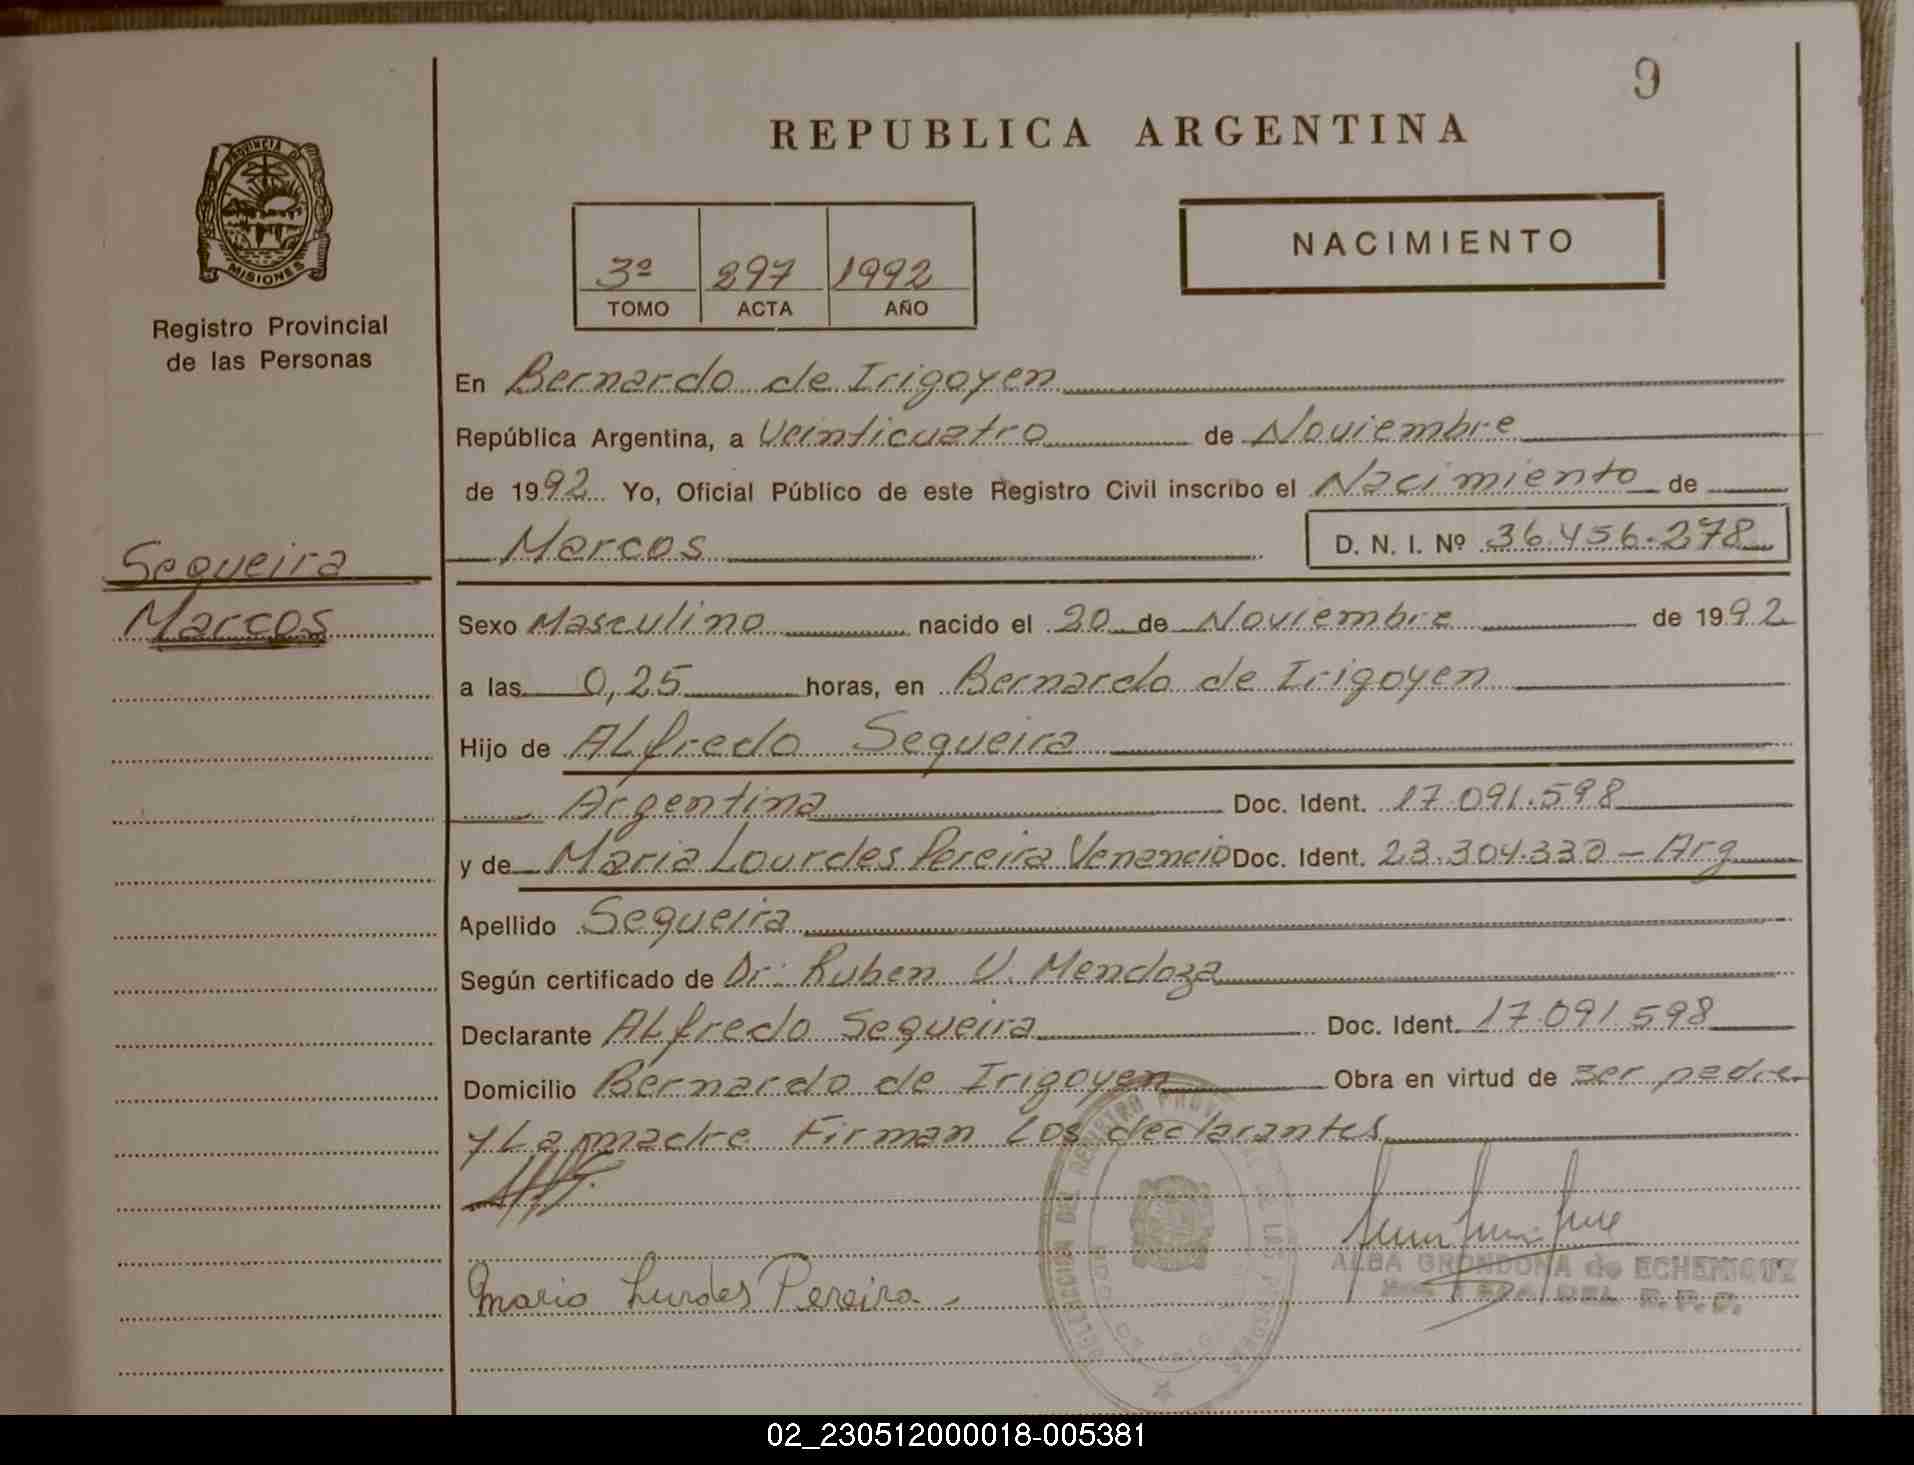 9
REPUBLICA ARGENTINA
PROVINCIA DE
MISIONES
Registro Provincial
de las Personas
NACIMIENTO
3º 297 1992
TOMO ACTA AÑO
En Bernardo de Irigoyen
República Argentina, a Veinticuatro de Noviembre
de 1992 Yo, Oficial Público de este Registro Civil inscribo el Nacimiento de
Marcos D. N. I. Nº 36.456.278
Sequeira
Marcos
Sexo Masculino nacido el 20 de Noviembre de 1992
a las 0,25 horas, en Bernardo de Irigoyen
Hijo de ALfredo Sequeira
Argentina Doc. Ident. 17.091.598
y de Maria Lourdes Pereira Venancio Doc. Ident. 23.304.330 - Arg
Apellido Sequeira
Según certificado de Dr. Ruben V. Mendoza
Declarante ALfredo Sequeira Doc. Ident. 17.091.598
Domicilio Bernardo de Irigoyen Obra en virtud de ser padre
y La madre Firman Los declarantes
ALBA GRONDONA de ECHENIQUE
DEL R. P. P.
Maria Lurdes Pereira.
02_230512000018-005381